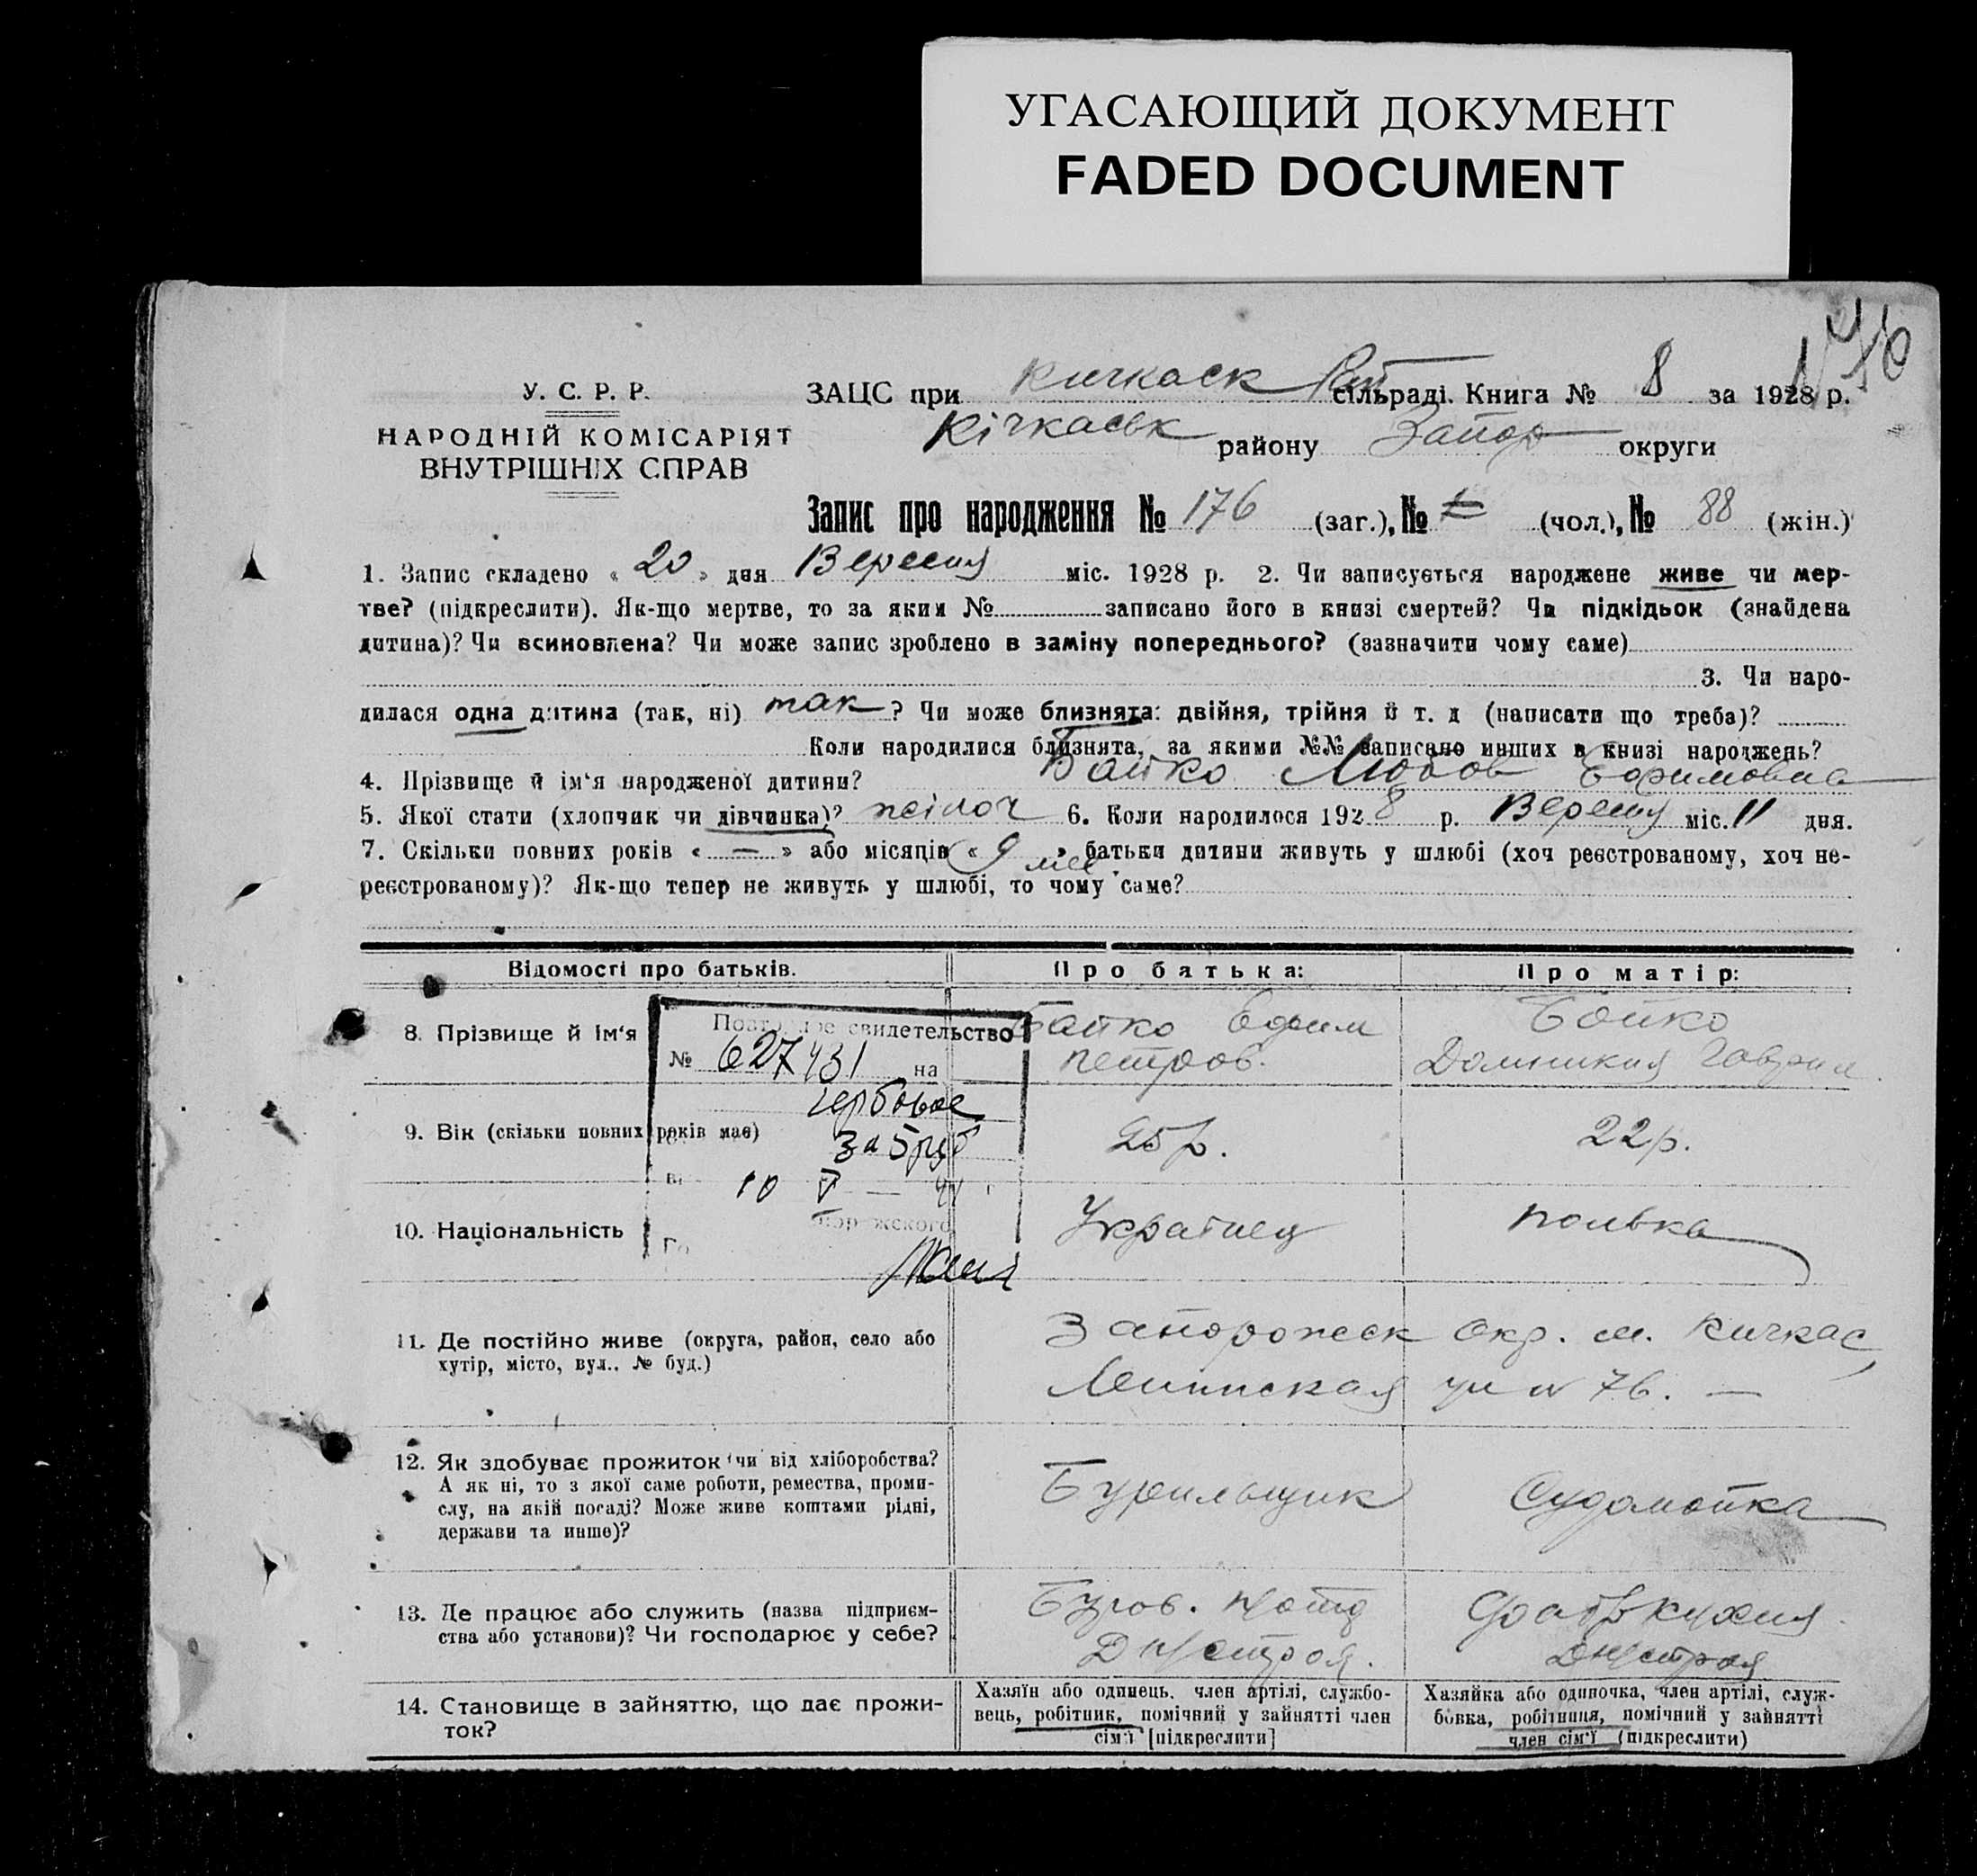 УГАСАЮЩИЙ ДОКУМЕНТ
FADED DOCUMENT
176
У. С. Р. Р.
НАРОДНІЙ КОМІСАРІЯТ
ВНУТРІШНІХ СПРАВ
ЗАЦС при Кичкаск сільраді. Книга № 8 за 1928 р.
Кічкаськ району Запор округи
Запис про народження № 176 (заг.), № (чол.), № 88 (жін.)
1. Запис складено « 20 » дня Вересня міс. 1928 р. 2. Чи записується народжене живе чи мер-
тве? (підкреслити). Як-що мертве, то за яким № записано його в книзі смертей? Чи підкідьок (знайдена
дитина)? Чи всиновлена? Чи може запис зроблено в заміну попереднього? (зазначити чому саме)
3. Чи наро-
дилася одна дитина (так, ні) так ? Чи може близнята: двійня, трійня й т. д (написати що треба)?
Коли народилися близнята, за якими №№ записано инших в книзі народжень?
4. Прізвище й ім'я народженої дитини? Бойко Любов Ефимовна
5. Якої стати (хлопчик чи дівчинка)? жіноч 6. Коли народилося 1928 р. Вересня міс. 11 дня.
7. Скільки повних років « — » або місяців « 9 мес » батьки дитини живуть у шлюбі (хоч реєстрованому, хоч не-
реєстрованому)? Як-що тепер не живуть у шлюбі, то чому саме?
Відомості про батьків.
Про батька:
Про матір:
8. Прізвище й ім'я
Бойко Ефим
Петров.
Бойко
Домникия Гаврил
Повторное свидетельство
№ 627431 на
гербовое
за 5 руб
10 V — 41 г
9. Вік (скільки повних років має)
25 р.
22 р.
10. Національність
Украінец
полька
11. Де постійно живе (округа, район, село або
хутір, місто, вул.. № буд.)
Запорожск окр. м. Кичкас,
ул № 76. —
12. Як здобуває прожиток чи від хліборобства?
А як ні, то з якої саме роботи, ремества, проми-
слу, на якій посаді? Може живе коштами рідні,
держави та инше)?
Бурильщик
Судомойка
13. Де працює або служить (назва підприєм-
ства або установи)? Чи господарює у себе?
Буров.
Днепростроя.
Фабр кухня
Днепростроя
14. Становище в зайняттю, що дає прожи-
ток?
Хазяїн або одинець. член артілі, службо-
вець, робітник, помічний у зайнятті член
сім'ї [підкреслити]
Хазяйка або одиночка, член артілі, служ-
бовка, робітниця, помічний у зайнятті
член сім'ї (підкреслити)